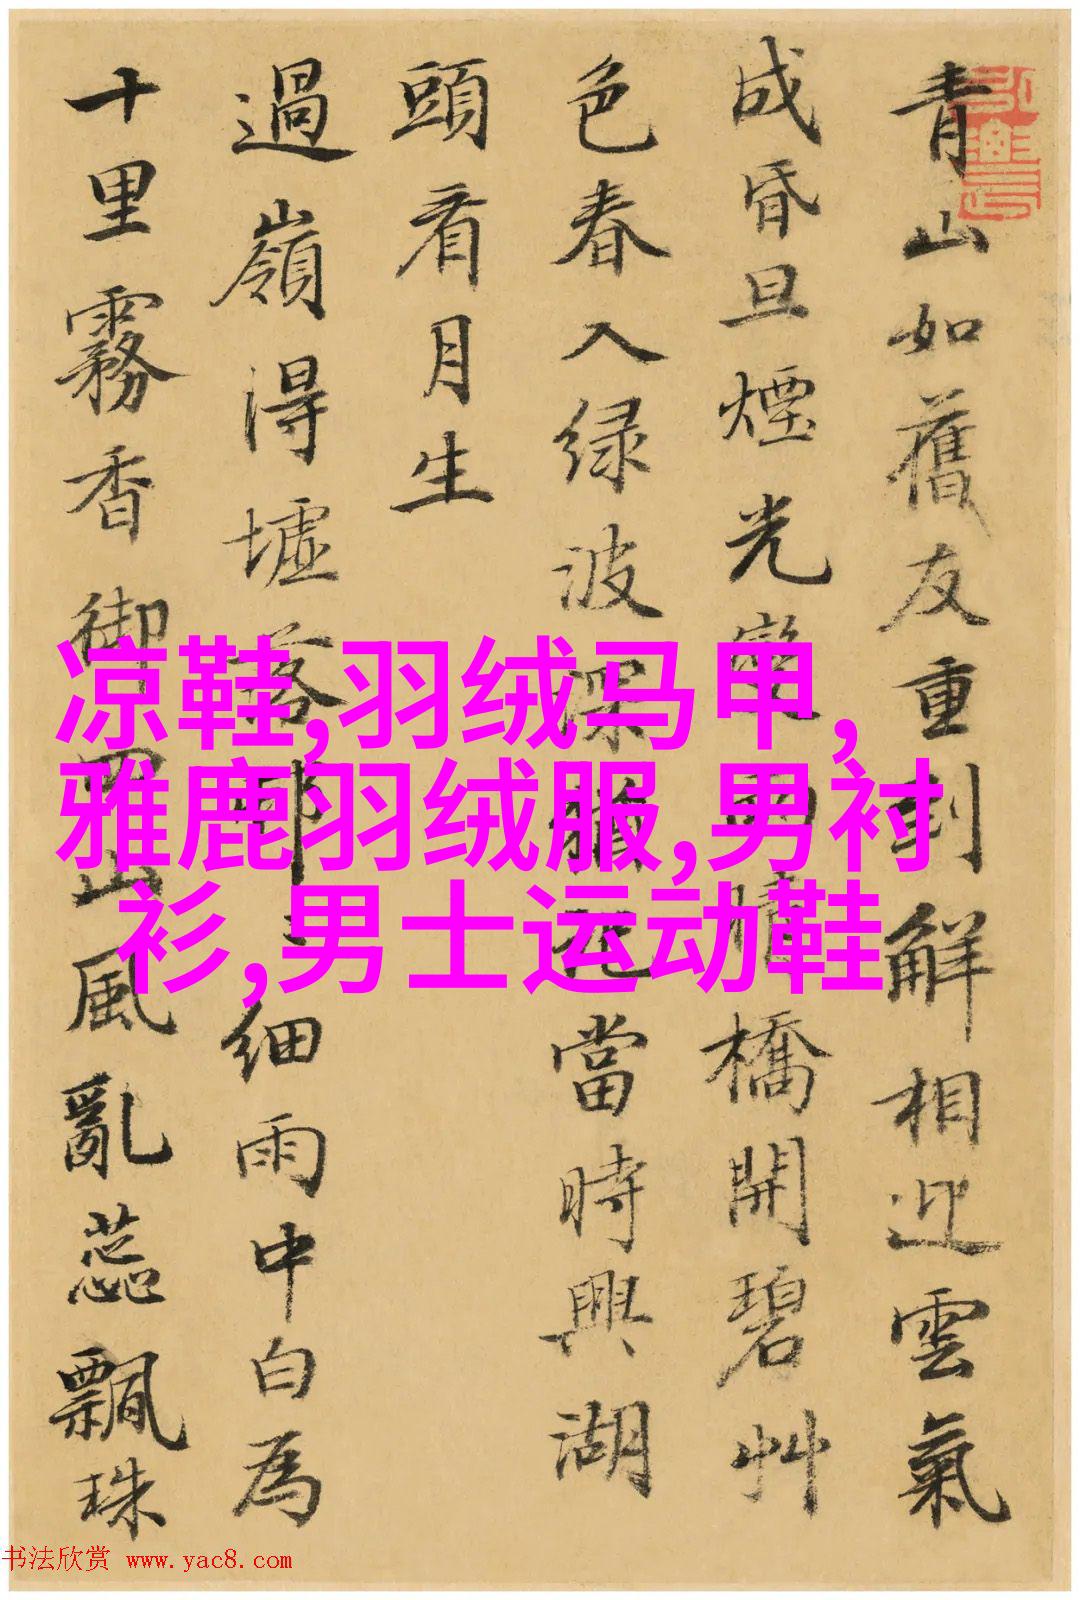 青山如舊友重到解相迎雲氣
成昏旦煙光變雨晴橋開碧艸
色春入绿波深猶當時興湖
頭看月生
過嶺得墟落邨〻細雨中白為
十里霧香御四山風亂蕊飄珠
凉鞋,羽绒马甲,
雅鹿羽绒服,男衬
衫,男士运动鞋
书法欣赏 www.yac8.com